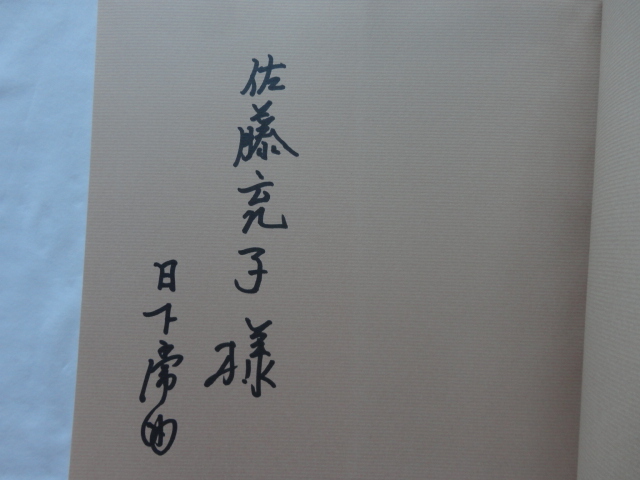 佐藤充子様
日下常由